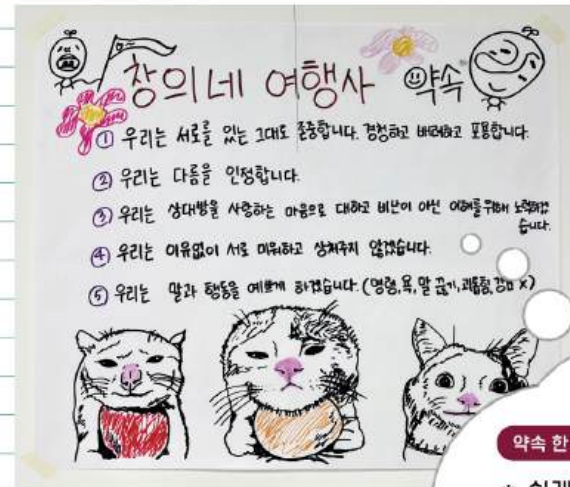 창의네 여행사 약속
① 우리는 서로를 있는 그대로 존중합니다. 경청하고 배려하고 포용합니다.
② 우리는 다름을 인정합니다.
③ 우리는 상대방을 사랑하는 마음으로 대하고 비난이 아닌 이해를 위해 노력하겠
습니다.
④ 우리는 이유없이 서로 미워하고 상처주지 않겠습니다.
⑤ 우리는 말과 행동을 예쁘게 하겠습니다. (명령, 욕, 말 끊기, 괴롭힘, 강요 x)
약속 한